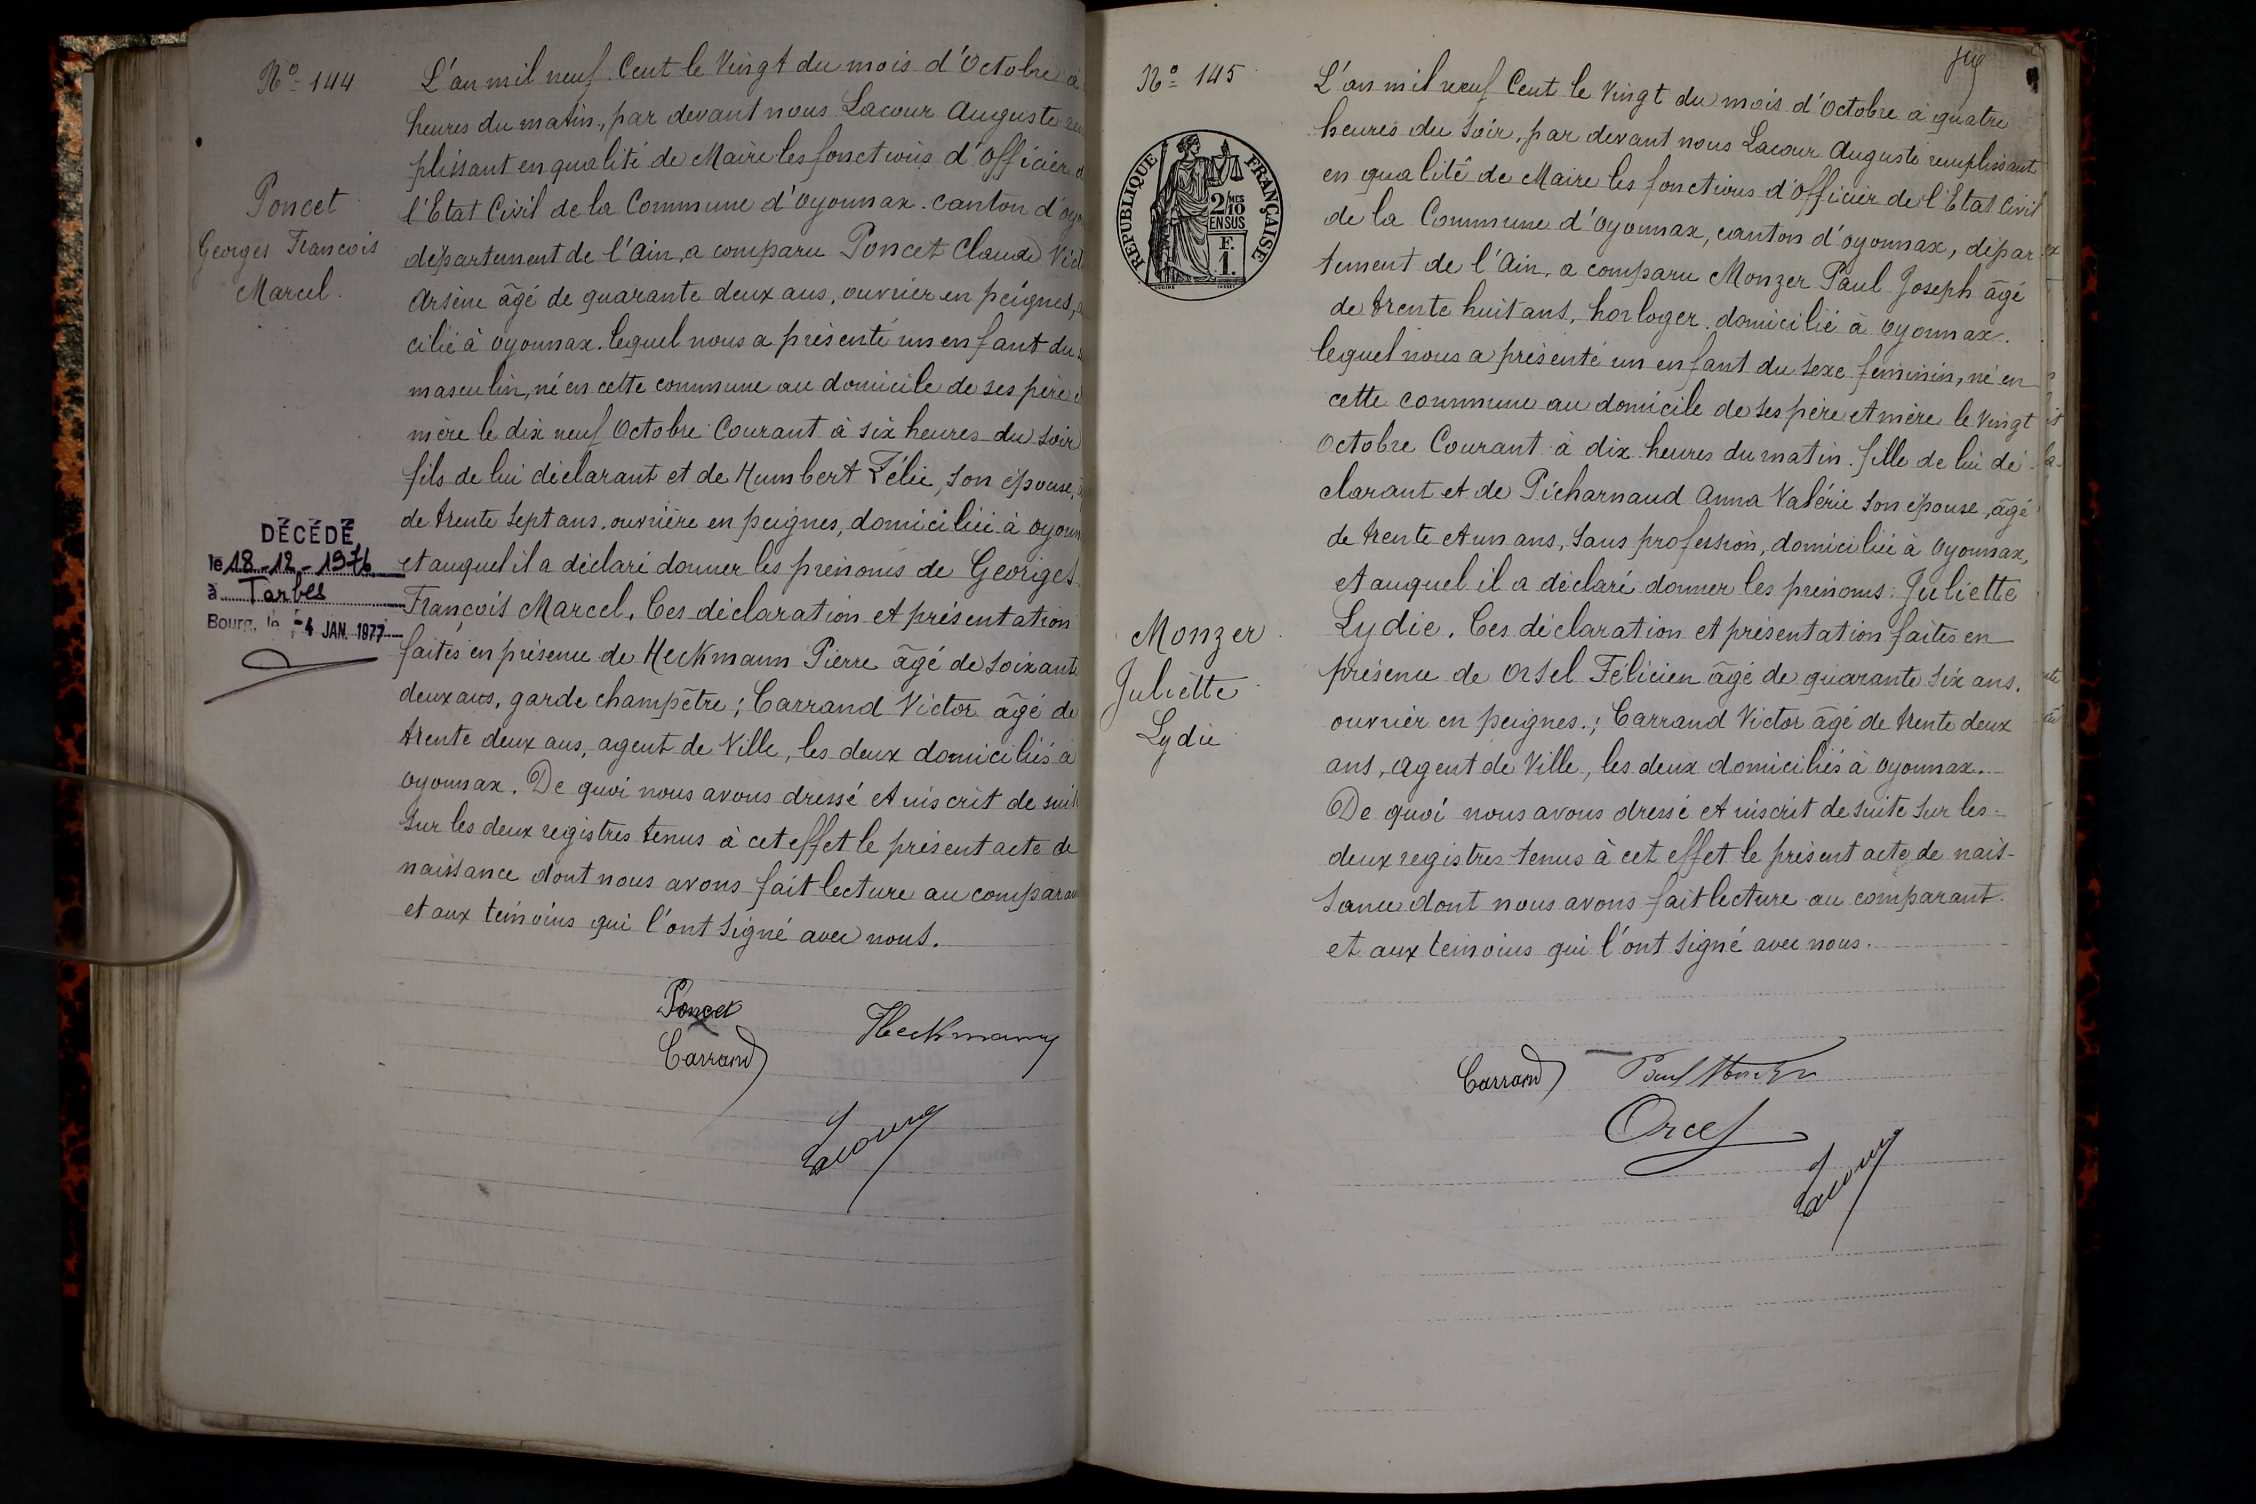 Nº 144
Poncet
Georges François
Marcel.
DÉCÉDÉ
le 18-12-1976
à Tarbes
Bourg, le -4 JAN. 1977
L'an mil neuf Cent le Vingt du mois d'Octobre à
heures du matin, par devant nous Lacour Auguste
plissant en qualité de Maire les fonctions d'Officier
l'Etat Civil de la Commune d'Oyonnax. canton d'
département de l'Ain, a comparu Poncet Claude
Arsène âgé de quarante deux ans, ouvrier en peignes,
cilié à Oyonnax. lequel nous a présenté un enfant du
masculin, né en cette commune au domicile de ses père
mère le dix neuf Octobre Courant à six heures du soir
fils de lui déclarant et de Humbert Félie, son épouse,
de trente sept ans. ouvrière en peignes, domiciliée à
et auquel il a déclaré donner les prénoms de Georges
François Marcel. Ces déclaration et présentation
faites en présence de Heckmann Pierre âgé de soixante
deux ans, garde champêtre; Carrand Victor âgé de
trente deux ans, agent de Ville, les deux domiciliés à
Oyonnax. De quoi nous avons dressé et inscrit de suite
sur les deux registres tenus à cet effet le présent acte de
naissance dont nous avons fait lecture au comparant
et aux témoins qui l'ont signé avec nous.
Poncet
Heckmann
Carrand
Lacour
Nº 145
RÉPUBLIQUE FRANÇAISE
2/10 MES
EN SUS
F.
1.
Monzer
Juliette
Lydie
L'an mil neuf Cent le Vingt du mois d'Octobre à quatre
heures du soir, par devant nous Lacour Auguste remplissant
en qualité de Maire les fonctions d'Officier de l'Etat Civil
de la Commune d'Oyonnax, canton d'Oyonnax, dépar
tement de l'Ain, a comparu Monzer Paul Joseph âgé
de trente huit ans, horloger. domicilié à Oyonnax.
lequel nous a présenté un enfant du sexe féminin, né en
cette commune au domicile de ses père et mère le Vingt
Octobre Courant à dix heures du matin. fille de lui dé
clarant et de Picharnaud Anna Valérie son épouse, âgé
de trente et un ans, sans profession, domiciliée à Oyonnax,
et auquel il a déclaré donner les prénoms: Juliette
Lydie. Ces déclaration et présentation faites en
présence de Orsel Félicien âgé de quarante six ans.
ouvrier en peignes.; Carrand Victor âgé de trente deux
ans, agent de Ville, les deux domiciliés à Oyonnax.
De quoi nous avons dressé et inscrit de suite sur les
deux registres tenus à cet effet le présent acte de nais-
sance dont nous avons fait lecture au comparant.
et aux témoins qui l'ont signé avec nous.
Carrand
Paul Monzer
Orcel
Lacour